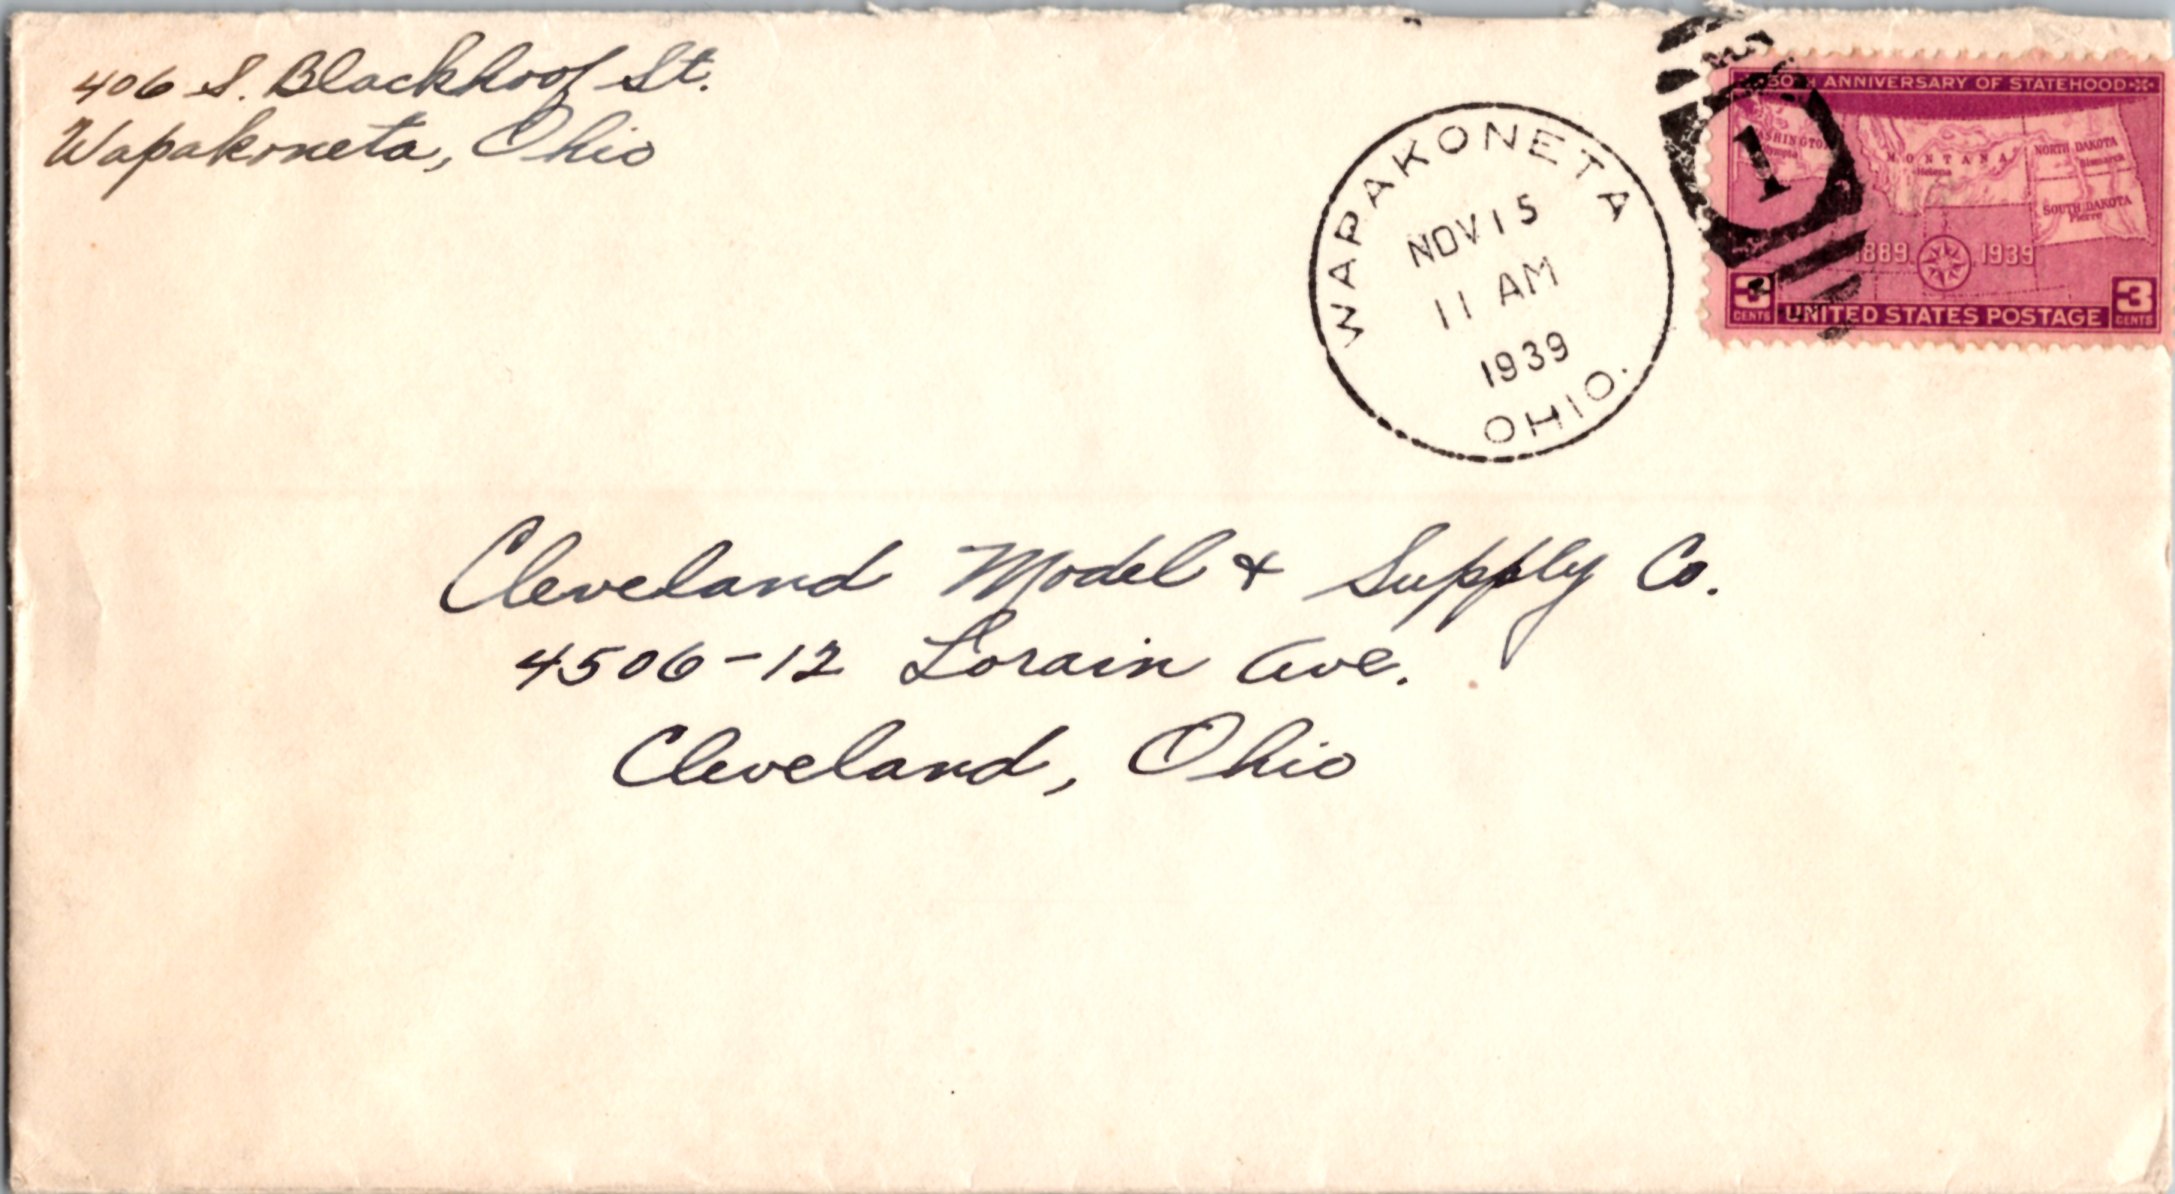 406 S. Blackhoof St.
Wapakoneta, Ohio
WAPAKONETA
NOV 15
11 AM
1939
OHIO.
1
50TH ANNIVERSARY OF STATEHOOD
WASHINGTON
Olympia
MONTANA
Helena
NORTH DAKOTA
Bismarck
SOUTH DAKOTA
Pierre
1889 1939
3 CENTS UNITED STATES POSTAGE 3 CENTS
Cleveland Model & Supply Co.
4506-12 Lorain Ave.
Cleveland, Ohio